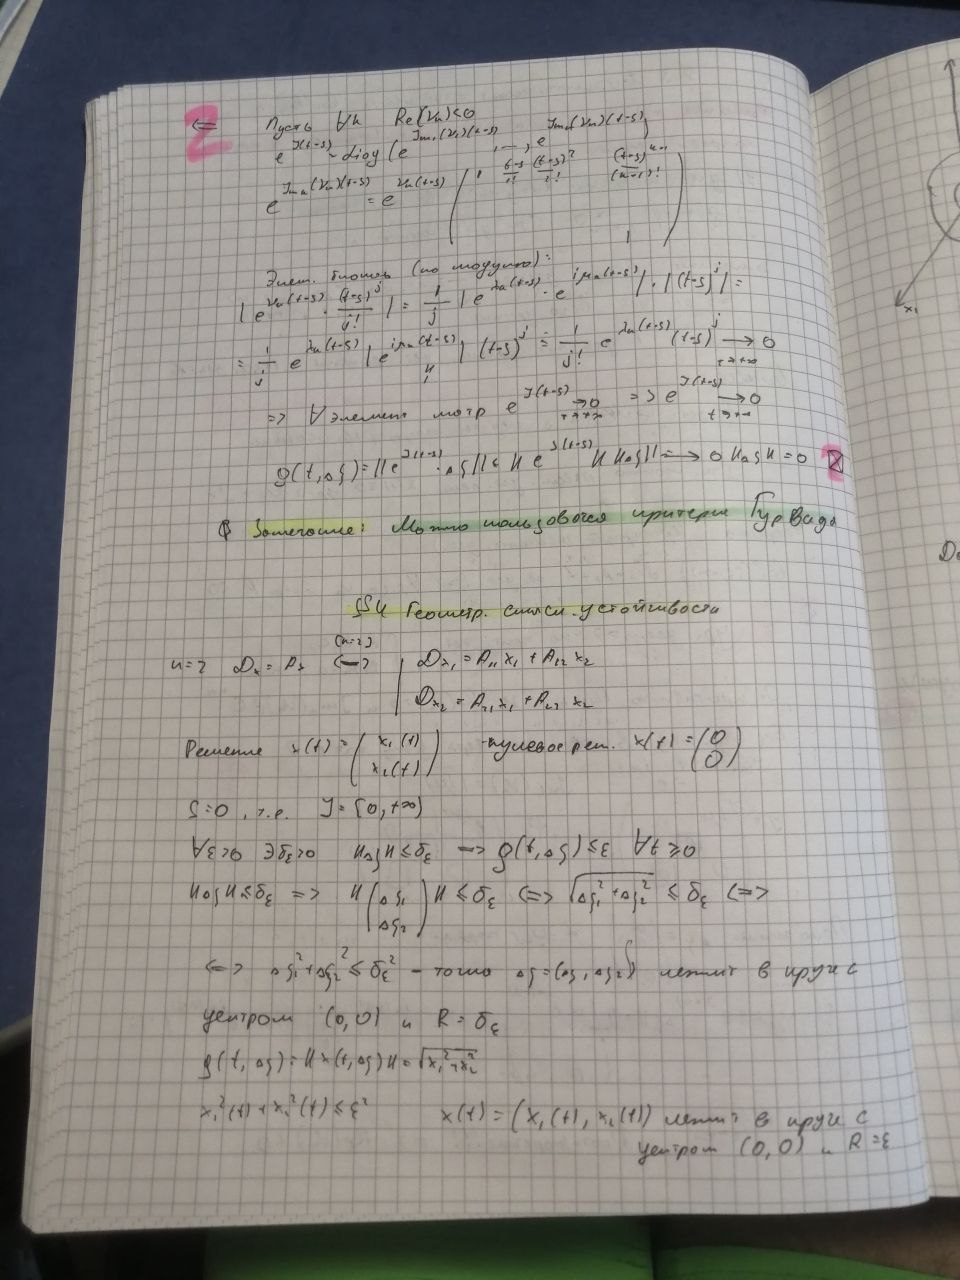 2 <= Пусть ∀k Re(ν_k)<0
e^{J(t-s)} - diag(e^{J_{m_1}(ν_1)(t-s)}, ..., e^{J_{m_n}(ν_n)(t-s)})
e^{J_{m_k}(ν_k)(t-s)} = e^{ν_k(t-s)} ( 1 (t-s)/1! (t-s)^2/2! (t-s)^{k-1}/(k-1)! 1 )
Элем. (по модулю):
|e^{ν_k(t-s)} · (t-s)^j/j!| = 1/j |e^{λ_k(t-s)} · e^{iμ_k(t-s)}| · |(t-s)^j| =
= 1/j e^{λ_k(t-s)} |e^{iμ_k(t-s)}| (t-s)^j = 1/j! e^{λ_k(t-s)} (t-s)^j → 0 t→+∞
=> ∀ элемент матр e^{J(t-s)} → 0 t→+∞ => e^{J(t-s)} → 0 t→+∞
ρ(t,Δξ) = ||e^{J(t-s)} · Δξ|| ≤ ||e^{J(t-s)}|| ||Δξ|| → 0 ||Δξ|| = 0 ⊠
Замечание: Можно пользовася критерие Гурвица
§4 Геометр. смысл устойчивости
n=2 Dx = Ax <-> (n=2) | Dx_1 = A_{11} x_1 + A_{12} x_2
Dx_2 = A_{21} x_1 + A_{22} x_2
Решение x(t) = (x_1(t) x_2(t)) -нулевое реш. x(t) = (0 0)
S=0, т.е. J = [0,+∞)
∀ε>0 ∃δ_ε>0 ||Δξ|| ≤ δ_ε => ρ(t,Δξ) ≤ ε ∀t ≥ 0
||Δξ|| ≤ δ_ε => ||(Δξ_1 Δξ_2)|| ≤ δ_ε <=> √(Δξ_1^2 + Δξ_2^2) ≤ δ_ε <=>
<=> Δξ_1^2 + Δξ_2^2 ≤ δ_ε^2 - точка Δξ = (Δξ_1, Δξ_2) лежит в круге с
центром (0,0) и R = δ_ε
ρ(t,Δξ) = ||x(t,Δξ)|| = √(x_1^2 + x_2^2)
x_1^2(t) + x_2^2(t) ≤ ε^2 x(t) = (x_1(t), x_2(t)) лежит в круге с
центром (0,0) и R = ε
x_1